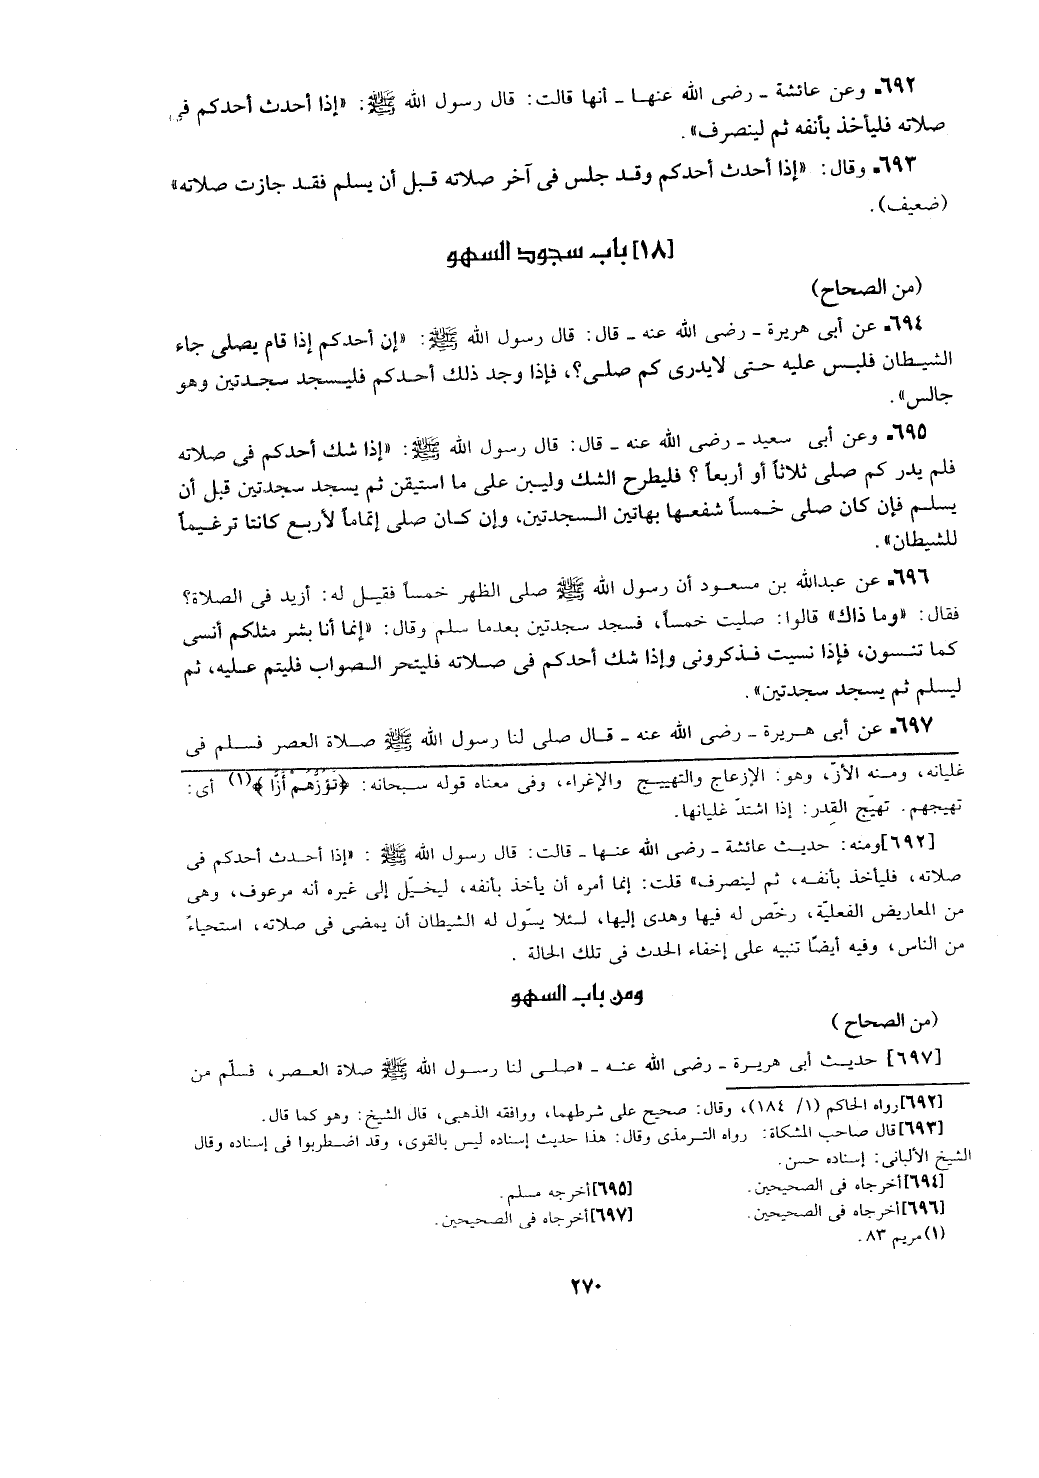 ٦٩٢ـ وعن عائشة ـ رضى الله عنهـا ـ أنها قالت: قال رسول الله ﷺ: «إذا أحدث أحدكم فى
صلاته فليأخذ بأنفه ثم لينصرف».
٦٩٣ـ وقال: «إذا أحدث أحدكم وقـد جلس فى آخر صلاته قـبل أن يسلم فقـد جازت صلاته»
(ضعيف).
[١٨] باب سجود السهو
(من الصحاح)
٦٩٤ـ عن أبى هريرة ـ رضى الله عنه ـ قال: قال رسول الله ﷺ: «إن أحدكم إذا قام يصلى جاء
الشيـطان فلبـس عليه حـتى لايدرى كم صلـى؟، فإذا وجد ذلك أحـدكم فليـسجد سجـدتين وهو
جالس».
٦٩٥ـ وعن أبى سعيد ـ رضى الله عنه ـ قال: قال رسول الله ﷺ: «إذا شك أحدكم فى صلاته
فلم يدر كم صلى ثلاثاً أو أربعاً ؟ فليطرح الشك وليبن على ما استيقن ثم يسجد سجدتين قبل أن
يسلـم فإن كان صلى خمـساً شفعـها بهاتين السـجدتين، وإن كـان صلى إتماماً لأربع كانتا ترغيـماً
للشيطان».
٦٩٦ـ عن عبدالله بن مسعـود أن رسول الله ﷺ صلى الظهر خمساً فقيـل له: أزيد فى الصلاة؟
فقال: «وما ذاك» قالوا: صليت خمساً، فسجد سجدتين بعدما سلم وقال: «إنما أنا بشر مثلكم أنسى
كما تنـسون، فإذا نسيت فـذكرونى وإذا شك أحدكم فى صـلاته فليتحر الـصواب فليتم عـليه، ثم
ليسلم ثم يسجد سجدتين».
٦٩٧ـ عن أبى هـريرة ـ رضى الله عنه ـ قـال صلى لنا رسول الله ﷺ صـلاة العصر فسـلم فى
غليانه، ومـنه الأزّ، وهو: الإزعاج والتهييـج والإغراء، وفى معناه قوله سـبحانه: ﴿تَؤُزُّهُمْ أَزًّا﴾(١) أى:
تهيجهم. تهيّج القِدر: إذا اشتدّ غليانها.
[٦٩٢]ومنه: حديـث عائشة ـ رضى الله عنـها ـ قالت: قال رسول الله ﷺ : «إذا أحـدث أحدكم فى
صلاته، فليأخذ بأنفـه، ثم لينصرف» قلت: إنما أمره أن يأخذ بأنفه، ليخيّل إلى غيره أنه مرعوف، وهى
من المعاريض الفعليّة، رخّص له فيها وهدى إليها، لـئلا يسّول له الشيطان أن يمضى فى صلاته، استحياءً
من الناس، وفيه أيضًا تنبيه على إخفاء الحدث فى تلك الحالة .
ومن باب السهو
(من الصحاح )
[٦٩٧] حديـث أبى هريـرة ـ رضى الله عنـه ـ «صلـى لنا رسـول الله ﷺ صلاة العـصر، فسلّم من
[٦٩٢]رواه الحاكم (١/ ١٨٤)، وقال: صحيح على شرطهما، ووافقه الذهبى، قال الشيخ: وهو كما قال.
[٦٩٣]قال صاحب المشكاة: رواه الترمذى وقال: هذا حديث إسناده ليس بالقوى، وقد اضطربوا فى إسناده وقال
الشيخ الألبانى: إسناده حسن.
[٦٩٤]أخرجاه فى الصحيحين. [٦٩٥]أخرجه مسلم.
[٦٩٦]أخرجاه فى الصحيحين. [٦٩٧]أخرجاه فى الصحيحين.
(١) مريم ٨٣.
٢٧٠